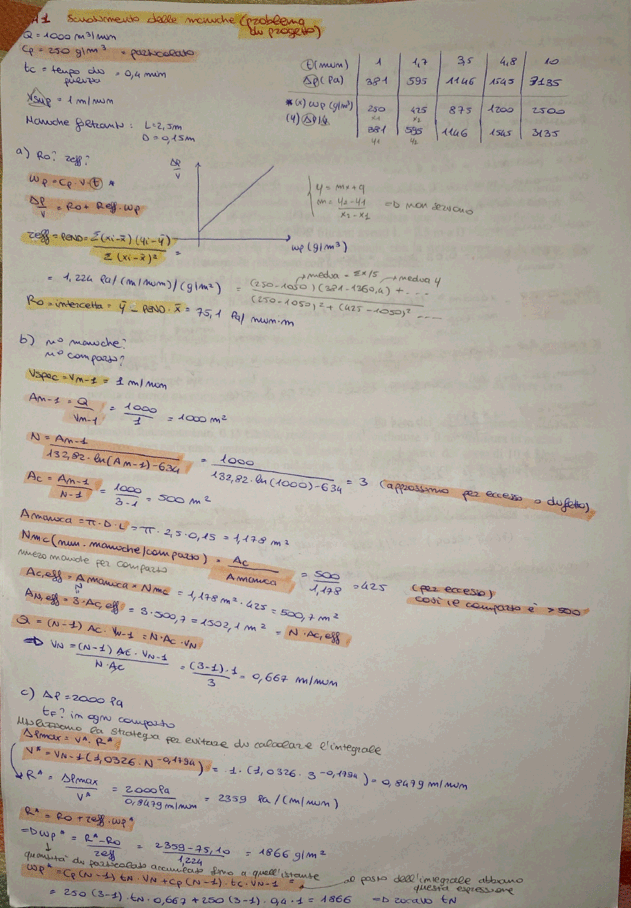 1 Scuotimento delle maniche (problema di progetto)
Q = 1000 m³/min
Cp = 250 g/m³ = particolato
tc = tempo di pulizia = 0,4 min
Vsup = 1 m/min
Maniche filtranti: L = 2,5m
D = 0,15m
t (min) 1 1,7 3,5 4,8 10
Δp (Pa) 381 595 1146 1545 3135
*(x) wp (g/m²) 250 425 875 1200 2500
x1 x2
(y) Δp/v 381 595 1146 1545 3135
y1 y2
a) R0? zeff?
wp = Cp · v · t *
Δp/v = R0 + Reff · wp
Δp/v
wp (g/m³)
y = mx + q
m = (y2 - y1)/(x2 - x1) => non servono
zeff = PEND = Σ(xi - x̄)(yi - ȳ) / Σ(xi - x̄)² =
media = Σx/5 media y
= 1,224 Pa/(m/min)/(g/m²) = (250-1050)(381-1360,4) + .... / (250-1050)² + (425-1050)² ....
R0 = intercetta = ȳ - PEND · x̄ = 75,1 Pa/min·m
b) n° maniche?
n° comparto?
Vspec = Vn-1 = 1 m/min
An-1 = Q/Vn-1 = 1000/1 = 1000 m²
N = An-1 / (132,82 · ln(An-1) - 634) = 1000 / (132,82 · ln(1000) - 634) = 3 (approssimo per eccesso o difetto)
Ac = An-1/(N-1) = 1000/(3-1) = 500 m²
Amanica = π · D · L = π · 2,5 · 0,15 = 1,178 m²
Nmc (num. maniche/comparto) = Ac/Amanica = 500/1,178 = 425 (per eccesso)
numero maniche per comparto
così il comparto è > 500
Ac,eff = Amanica · Nmc = 1,178 m² · 425 = 500,7 m²
N
AN,eff = 3 · Ac,eff = 3 · 500,7 = 1502,1 m² = N · Ac,eff
Q = (N-1) Ac · VN-1 = N · Ac · VN
=> VN = (N-1) Ac · VN-1 / N · Ac = (3-1) · 1 / 3 = 0,667 m/min
c) Δp = 2000 Pa
tf? in ogni comparto
Utilizziamo la strategia per evitare di calcolare l'integrale
Δpmax = V* · R*
V* = VN-1 (1,0326 · N^-0,1794) = 1 · (1,0326 · 3^-0,1794) = 0,8479 m/min
R* = Δpmax/V* = 2000 Pa/0,8479 m/min = 2359 Pa/(m/min)
R* = R0 + zeff · wp*
=> wp* = (R* - R0)/zeff = (2359 - 75,10)/1,224 = 1866 g/m²
quantità di particolato accumulato fino a quell'istante
wp* = Cp (N-1) tN · VN + Cp (N-1) · tc · VN-1 = al posto dell'integrale abbiamo questa espressione
= 250 (3-1) · tN · 0,667 + 250 (3-1) · 0,4 · 1 = 1866 => ricavo tN